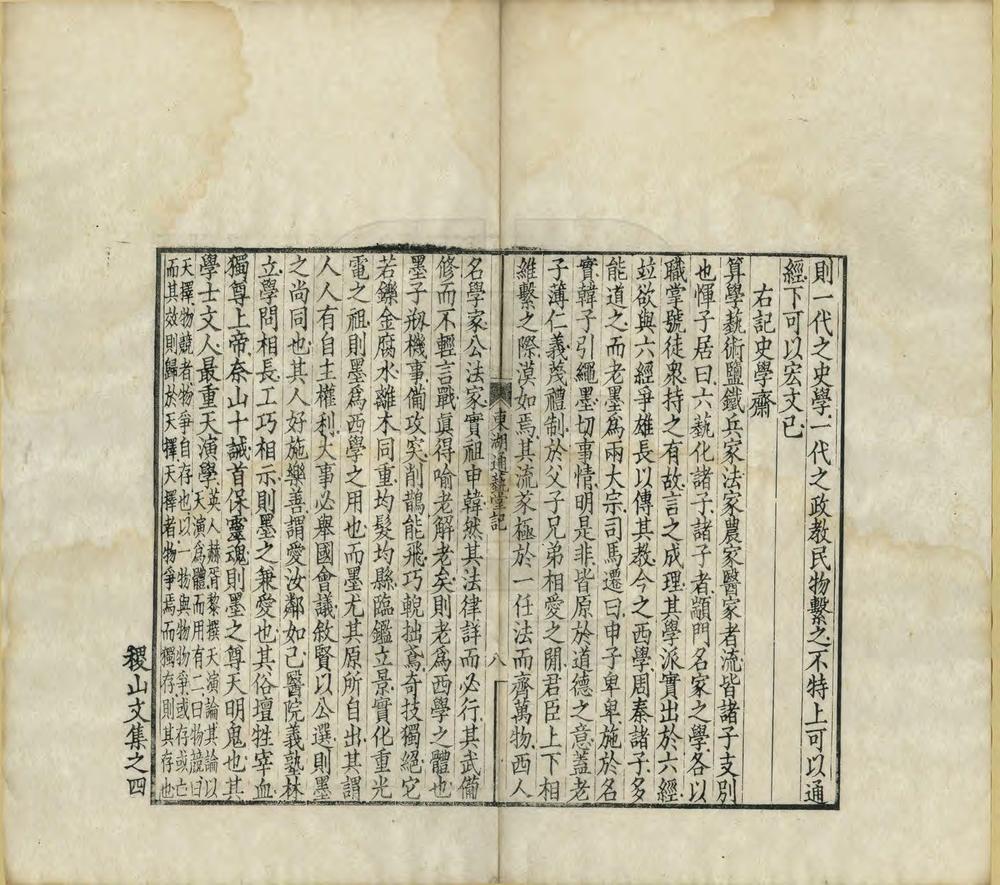 則一代之史學一代之政教民物繫之不特上可以通
經下可以宏文已
右記史學齋
算學藝術鹽鐵兵家法家農家醫家者流皆諸子支別
也惲子居曰六藝化諸子諸子者顓門名家之學各以
職掌號徒衆持之有故言之成理其學派實出於六經
竝欲與六經爭雄長以傳其教今之西學周秦諸子多
能道之而老墨爲兩大宗司馬遷曰申子卑卑施於名
實韓子引繩墨切事情明是非皆原於道德之意蓋老
子薄仁義蔑禮制於父子兄弟相愛之閒君臣上下相
維繫之際漠如焉其流家極於一任法而齊萬物西人
東湖通藝堂記
八
名學家公法家實祖申韓然其法律詳而必行其武備
修而不輕言戰眞得喻老解老矣則老爲西學之體也
墨子剏機事備攻突削鵲能飛巧輗拙鳶奇技獨絕它
若鑠金腐水離木同重均髮均縣臨鑑立景實化重光
電之祖則墨爲西學之用也而墨尤其原所自出其謂
人人有自主權利大事必舉國會議敘賢以公選則墨
之尚同也其人好施樂善謂愛汝鄰如己醫院義塾林
立學問相長工巧相示則墨之兼愛也其俗壇牲宰血
獨尊上帝奈山十誡首保靈魂則墨之尊天明鬼也其
學士文人最重天演學英人赫胥黎撰天演論其論以
天演爲體而用有二曰物競曰
天擇物競者物爭自存也以一物與物物爭或存或亡
而其效則歸於天擇天擇者物爭焉而獨存則其存也
稷山文集之四